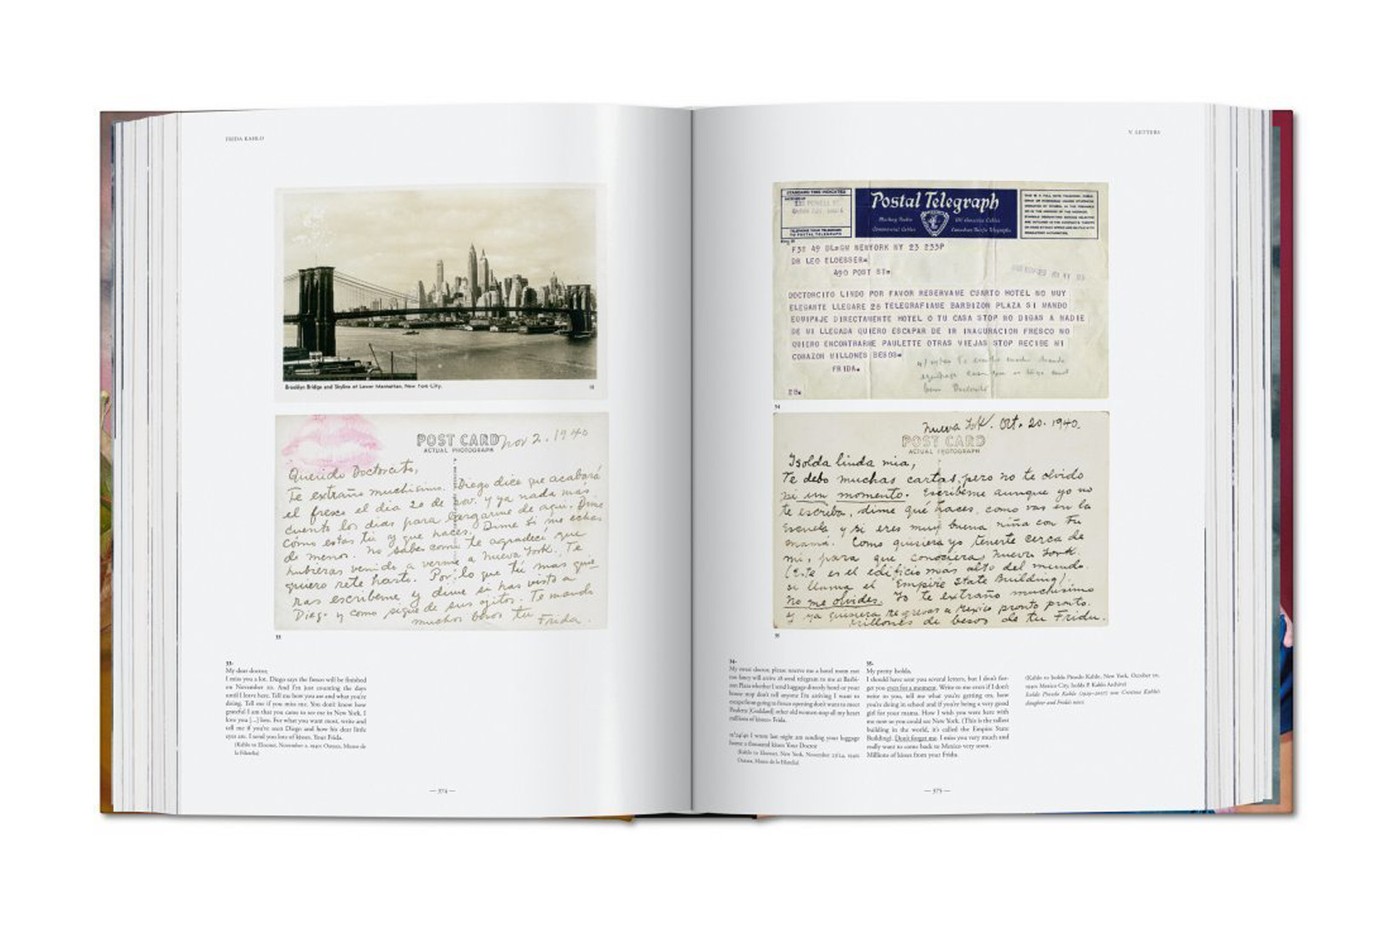 FRIDA KAHLO
Brooklyn Bridge and Skyline of Lower Manhattan, New York City.
POST CARD
ACTUAL PHOTOGRAPH
Nov 2. 1940
Querido Doctorcito,
Te extraño muchísimo. Diego dice que acabará
el fresco el día 20 de nov. y ya nada más
cuento los días para largarme de aquí. Dime
cómo estas tú y que haces. Dime si me echas
de menos. No sabes como te agradecí que
hubieras venido a verme a Nueva York. Te
quiero rete harto. Por lo que tú mas quie
ras escribeme y dime si has visto a
Diego y como sigue de sus ojitos. Te mando
muchos besos tu Frida.
33
33-
My dear doctor,
I miss you a lot. Diego says the fresco will be finished
on November 20. And I'm just counting the days
until I leave here. Tell me how you are and what you're
doing. Tell me if you miss me. You don't know how
grateful I am that you came to see me in New York. I
love you [...] lots. For what you want most, write and
tell me if you've seen Diego and how his dear little
eyes are. I send you lots of kisses. Your Frida.
(Kahlo to Eloesser, November 2, 1940: Oaxaca, Museo de
la Filatelia)
— 574 —
V. LETTERS
STANDARD TIME INDICATED
Postal Telegraph
Mackay Radio
All America Cables
Commercial Cables
Canadian Pacific Telegraphs
NEWYORK NY 23 235P
DR LEO ELOESSER=
490 POST ST=
DOCTORCITO LINDO POR FAVOR RESERVAME CUARTO HOTEL NO MUY
ELEGANTE LLEGARE 28 TELEGRAFIAME BARBIZON PLAZA SI MANDO
EQUIPAJE DIRECTAMENTE HOTEL O TU CASA STOP NO DIGAS A NADIE
DE MI LLEGADA QUIERO ESCAPAR DE IR INAGURACION FRESCO NO
QUIERO ENCONTRARME PAULETTE OTRAS VIEJAS STOP RECIBE MI
CORAZON MILLONES BESOS=
FRIDA.
34
Nueva York. Oct. 20. 1940.
POST CARD
ACTUAL PHOTOGRAPH
Isolda linda mia,
Te debo muchas cartas, pero no te olvido
ni un momento. Escribeme aunque yo no
te escriba, dime qué haces, como vas en la
escuela y si eres muy buena niña con tu
mamá. Como quisiera yo tenerte cerca de
mi, para que conocieras Nueva York.
(Este es el edificio más alto del mundo.
se llama el "Empire State Building).
No me olvides. Yo te extraño muchisimo
y ya quisiera regresar a Mexico pronto pronto.
Millones de besos de tu Frida.
35
34-
My sweet doctor, please reserve me a hotel room not
too fancy will arrive 28 send telegram to me at Barbi-
zon Plaza whether I send luggage directly hotel or your
house stop don't tell anyone I'm arriving I want to
escape from going to fresco opening don't want to meet
Paulette [Goddard] other old women stop all my heart
millions of kisses= Frida.
11/24/40 I wrote last night am sending your luggage
home a thousand kisses Your Doctor
(Kahlo to Eloesser, New York, November 23/24, 1940:
Oaxaca, Museo de la Filatelia)
35-
My pretty Isolda,
I should have sent you several letters, but I don't for-
get you even for a moment. Write to me even if I don't
write to you, tell me what you're getting on, how
you're doing in school and if you're being a very good
girl for your mama. How I wish you were here with
me now so you could see New York. (This is the tallest
building in the world, it's called the Empire State
Building). Don't forget me. I miss you very much and
really want to come back to Mexico very soon.
Millions of kisses from your Frida.
(Kahlo to Isolda Pinedo Kahlo, New York, October 20,
1940: Mexico City, Isolda P. Kahlo Archive)
Isolda Pinedo Kahlo (1929–2007) was Cristina Kahlo's
daughter and Frida's niece.
— 575 —